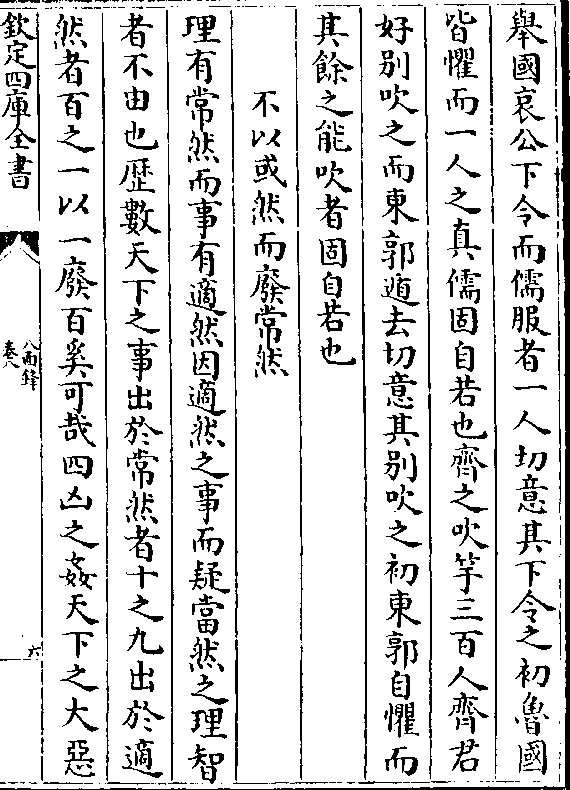 舉國哀公下令而儒服者一人切意其下令之初魯國
皆懼而一人之真儒固自若也齊之吹竽三百人齊君
好別吹之而東郭遁去切意其別吹之初東郭自懼而
其餘之能吹者固自若也
不以或然而廢常然
理有常然而事有適然因適然之事而疑當然之理智
者不由也歷數天下之事出於常然者十之九出於適
然者百之一以一廢百奚可哉四凶之姦天下之大惡
欽定四庫全書
八面鋒
卷八
六